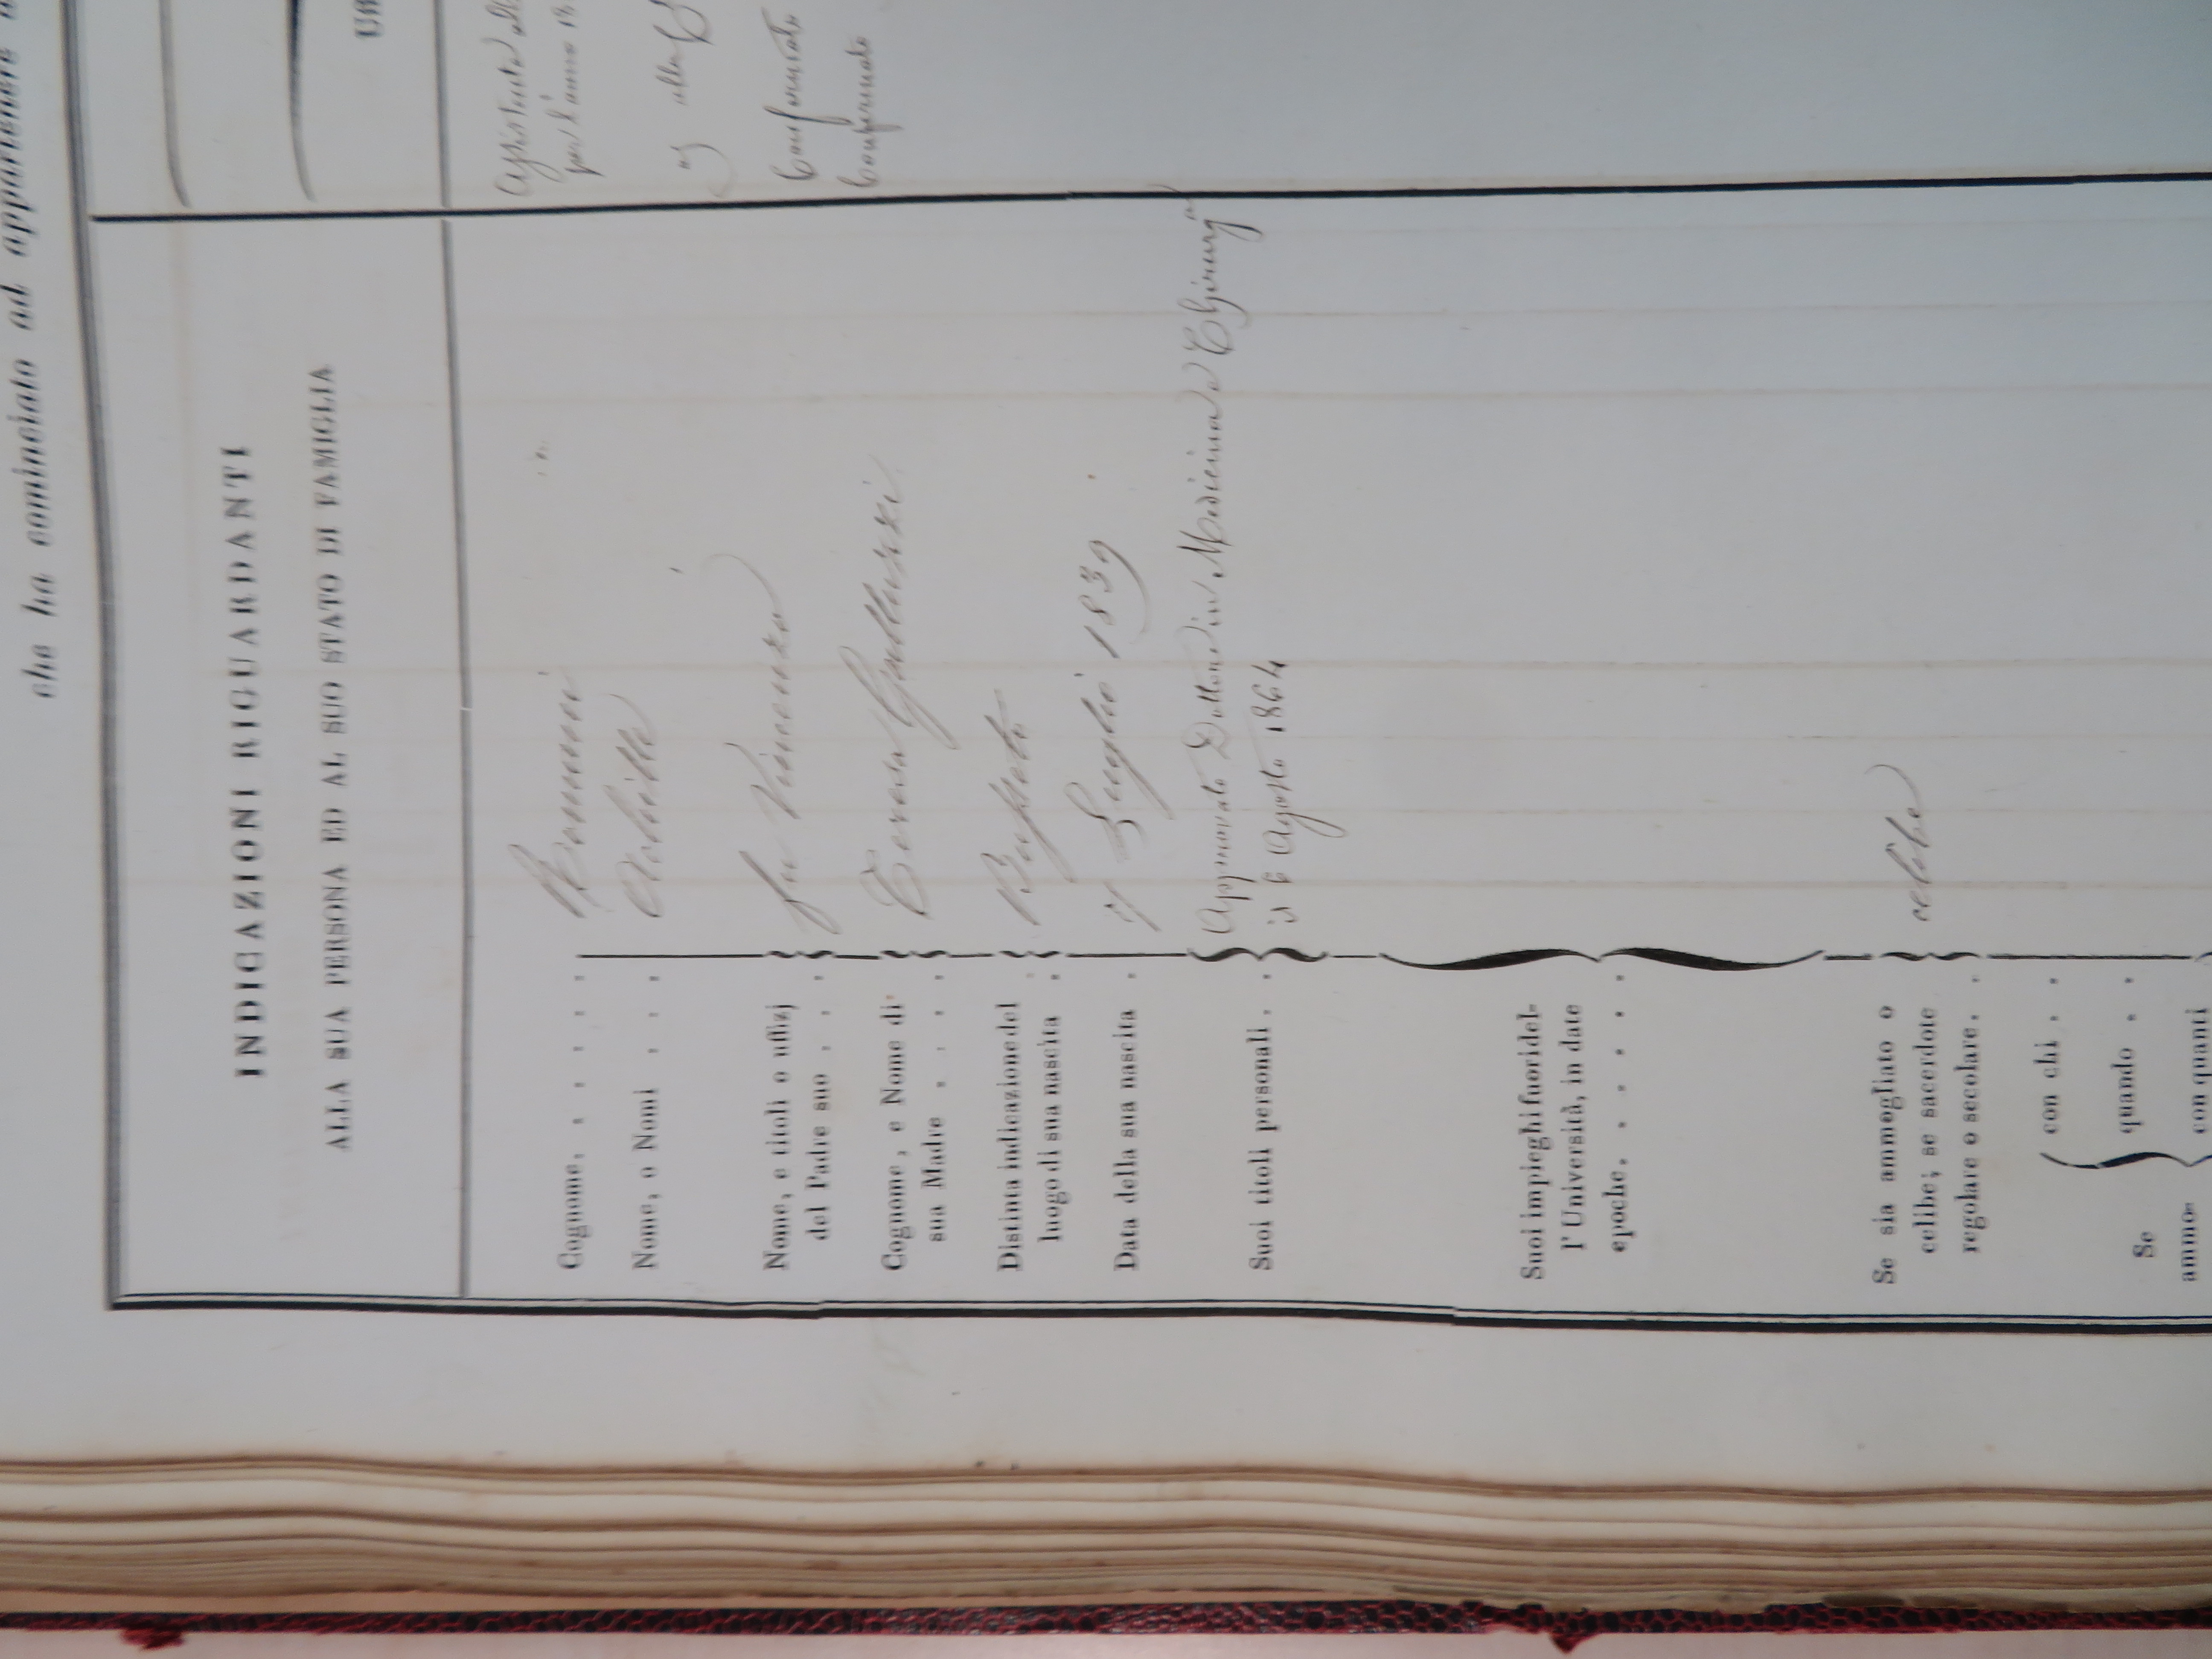 che ha cominciato ad appartenere
INDICAZIONI RIGUARDANTI
ALLA SUA PERSONA ED AL SUO STATO DI FAMIGLIA
Cognome,
Nome, o Nomi
Achille
Nome, e titoli o uffizj
del Padre suo
fu Vincenzo
Cognome, e Nome di
sua Madre
Teresa
Distinta indicazione del
luogo di sua nascita
Busseto
Data della sua nascita
Luglio 1839
Suoi titoli personali.
Approvato Dottore in Medicina e Chirurgia
il 6 Agosto 1864
Suoi impieghi fuori del-
l'Università, in date
epoche.
Se sia ammogliato o
celibe; se sacerdote
regolare o secolare.
celibe
con chi
Se
quando
ammo-
con quanti
per l'anno
alla
Confermato
Confermato